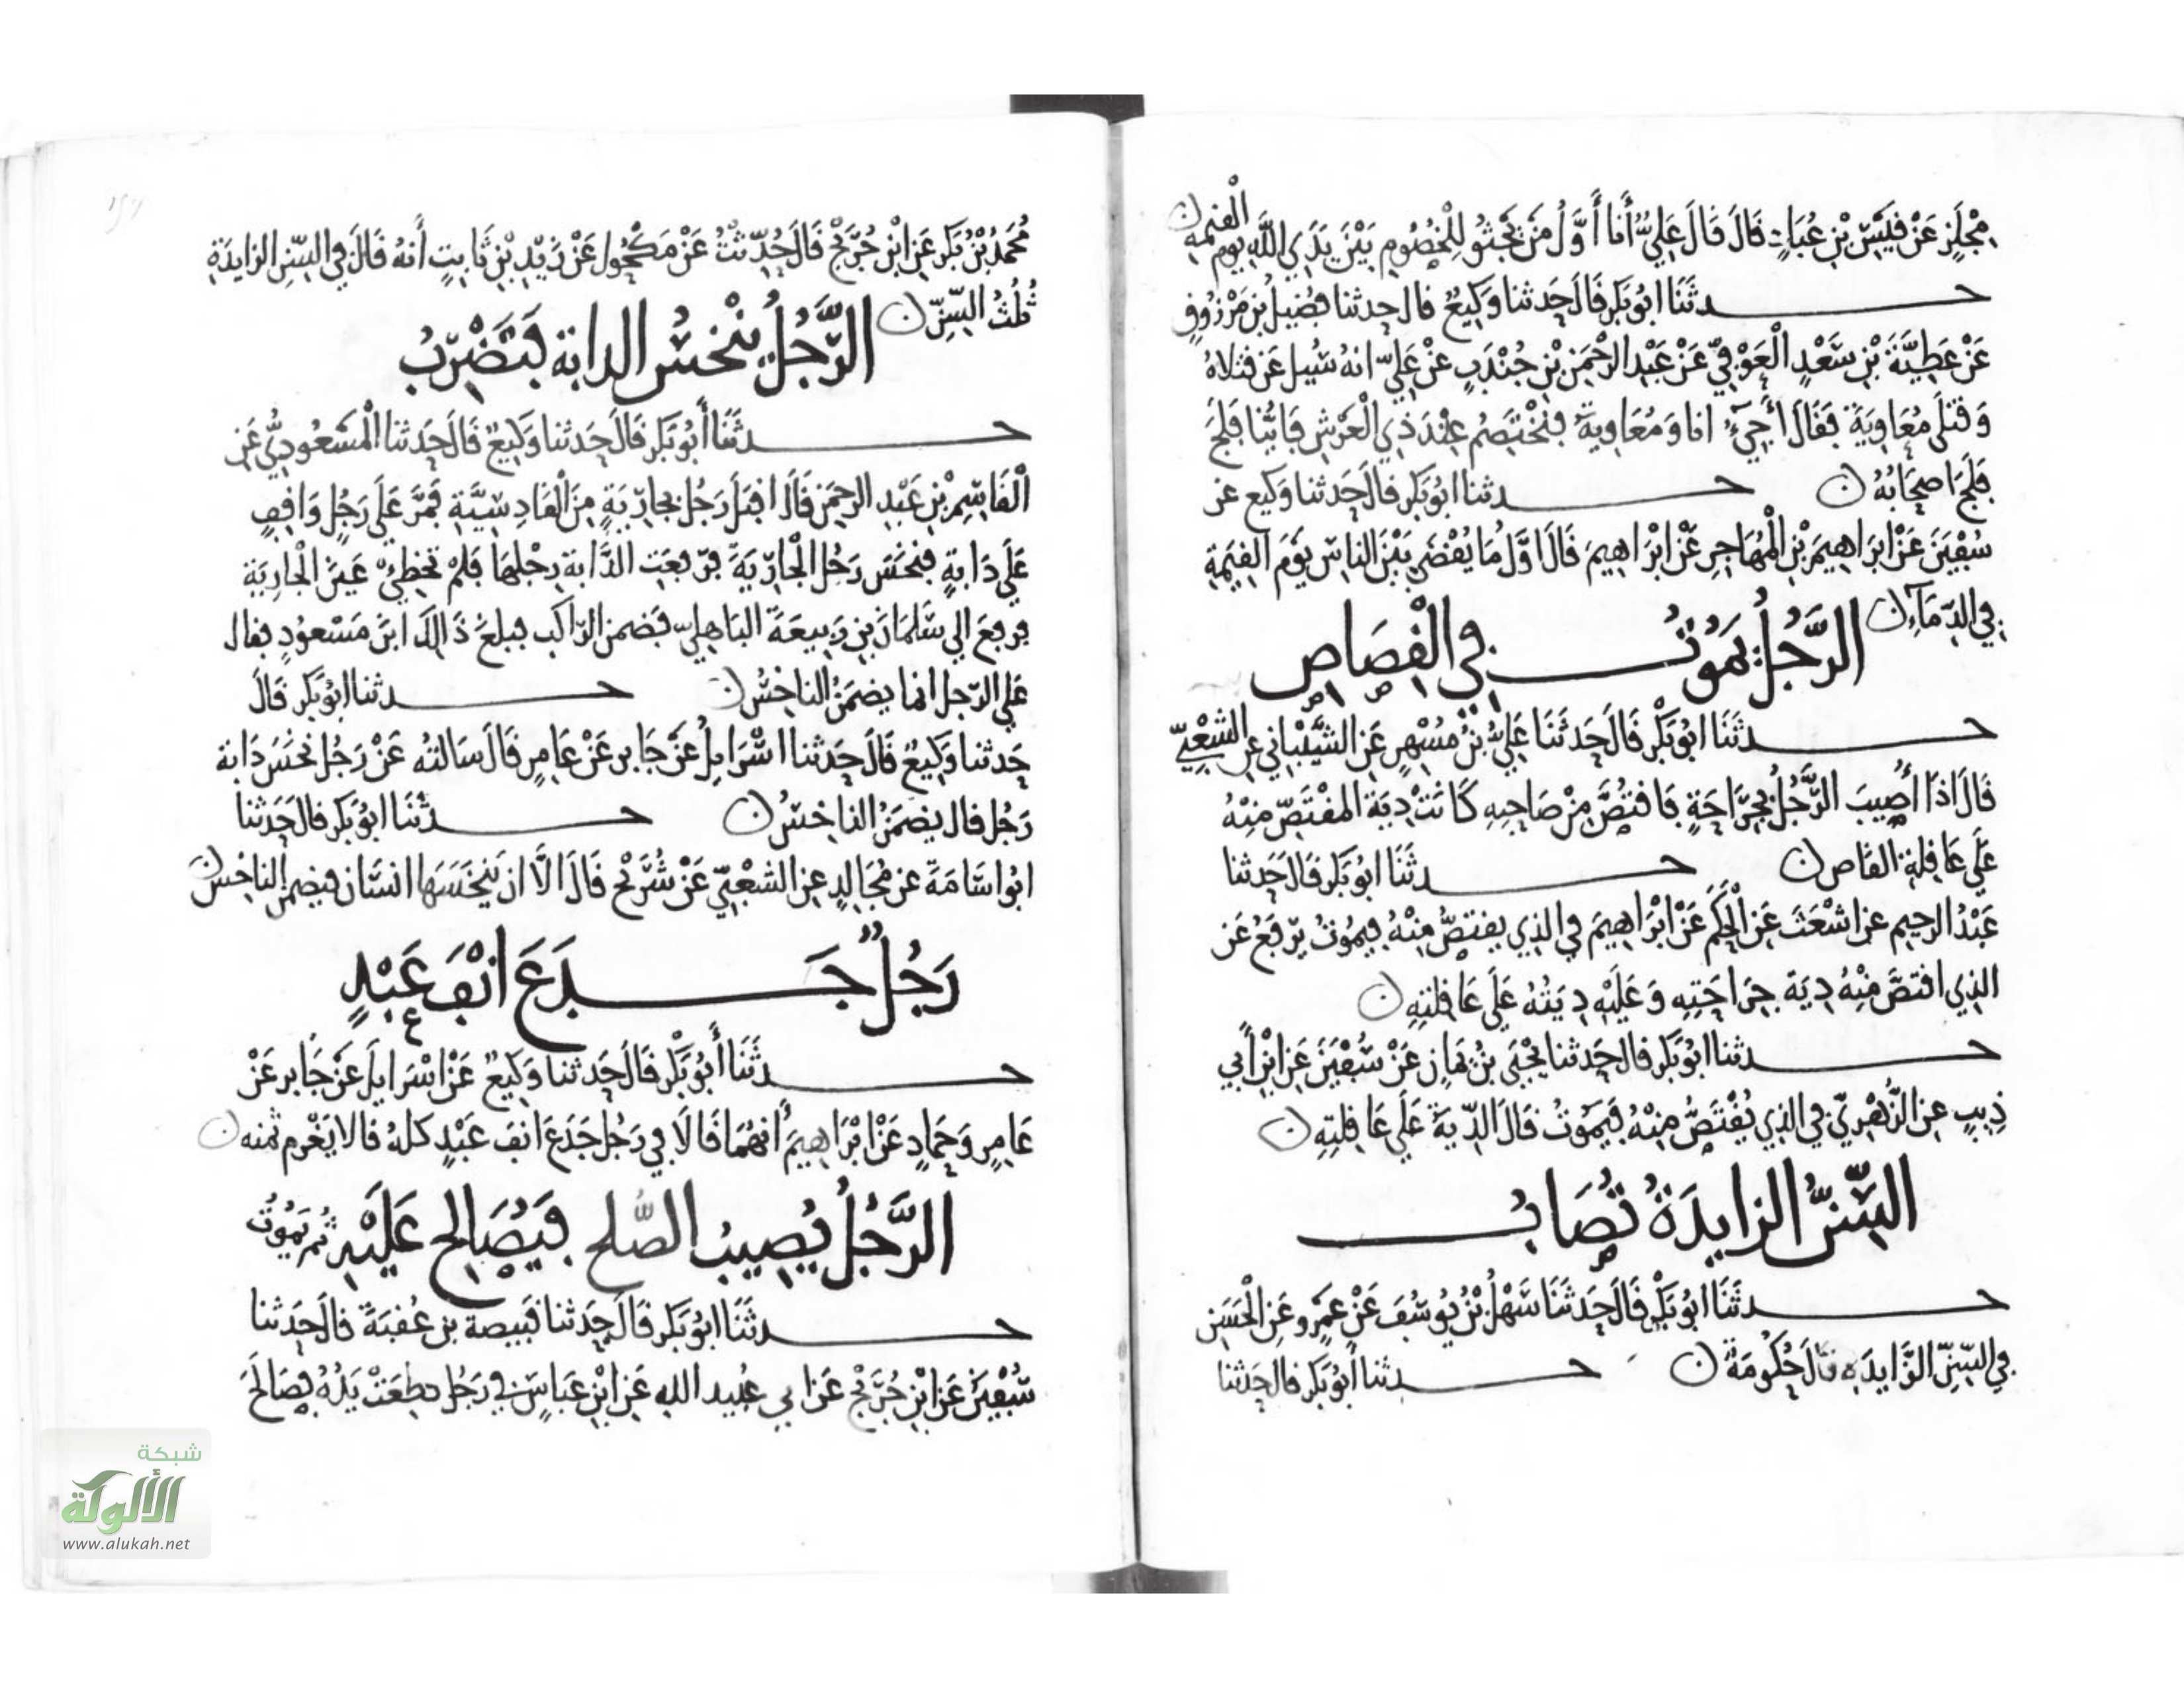 مِجْلَزٍ عَنْ قَيْسِ بْنِ عُبَادٍ قَالَ قَالَ عَلِيٌّ أَنَا أَوَّلُ مَنْ يَجْثُو لِلْخُصُومِ بَيْنَ يَدَيِ اللَّهِ يوم القيمة
حدثَنَا ابُو بَكرٍ قَالَ حَدثنا وَكِيعٌ قال حدثنا فُضَيلُ بن مَرْزُوقٍ
عَنْ عَطِيَّةَ بْنِ سَعْدٍ الْعَوْفِيِّ عَنْ عَبْدِ الرَّحْمَنِ بْنِ جُنْدَبٍ عَنْ عَلِيٍّ انهُ سُيِلَ عَن قَتْلاهُ
وَقَتْلَى مُعَاوِيَةَ فَقَالَ أَجِيءُ انا وَمُعَاوِيَةُ فنَخْتَصِمُ عِنْدَ ذِي الْعَرْشِ فَايُّنَا فَلَجَ
فَلَجَ اصحَابُهُ حدثنا ابُو بَكرٍ قالَ حَدثنا وَكيع عن
سُفْيَنَ عَنْ ابرَاهِيمَ بْنِ الْمُهَاجِرِ عَنْ ابْرَاهِيمَ قَالَ اوَّلُ مَا يُقْضَى بَيْنَ الناسِ يَوْمَ القِيَمَةِ
فِي الدِّمَآءِ
الرَّجُلُ يَمُوتُ فِي الْقِصَاصِ
حدثَنَا ابُو بَكْرٍ قَالَ حَدثَنَا عَلِيُّ بْنُ مُسْهِرٍ عَنِ الشَّيْبَانِي عَنِ الشَّعْبِيِّ
قَالَ اذَا أُصِيبَ الرَّجُلُ بِجِرَاحَةٍ فَاقتَصَّ مِنْ صَاحِبِهِ كَانَتْ دِيَةُ المقْتَصِّ مِنْهُ
عَلَى عَاقِلةِ القَاص حدثَنَا ابُو بَكرٍ قَالَ حَدثنا
عَبْدُ الرحِيمِ عن اشْعَثَ عَنِ الْحَكَمِ عَنْ ابْرَاهِيمَ فِي الذِي يقتَصُّ مِنْهُ فيمُوتُ يرْفَعُ عَن
الذِي اقتَصَّ مِنْهُ دِيَة جِرَاحَتِهِ وَعَلَيْهِ دِيَتُهُ عَلَى عَاقِلتِهِ
حدثنا ابُو بَكرٍ قال حَدثنا يَحْيَى بْنُ يَمَانٍ عَنْ سُفْيَنَ عَنِ ابْنِ أَبِي
ذِيبٍ عنِ الزُّهْرِيِّ فِي الذِي يُقْتَصُّ مِنْهُ فَيَمُوتُ قَالَ الدِّيَةُ عَلَى عَاقِلتِهِ
السِّنُّ الزايدَةُ تُصَابُ
حدثَنَا ابُو بَكْرٍ قَالَ حَدثَنَا سَهْلُ بْنُ يُوسُفَ عَنْ عَمْرٍو عَنِ الْحَسَنِ
فِي السِّنِّ الزَّايدَةِ قَالَ حُكُومَةٌ حدثنا أبُو بَكرٍ قالَ حَدثنا
مُحَمَدُ بْنُ بَكرٍ عَنِ ابْنِ جُرَيْجٍ قَالَ حُدِّثْتُ عَنْ مَكْحُولٍ عَنْ زَيْدِ بْنِ ثَابِتٍ أَنهُ قَالَ فِي السِّنِ الزايدَةِ
ثُلُثُ السِّنِّ
الرَّجُلُ يَنْخسُ الدابة فَتَضْرِبُ
حدثَنَا أَبُو بَكرٍ قَالَ حَدثنا وَكِيعٌ قَالَ حَدثنا الْمَسْعُودِيُّ عَنِ
الْقَاسِمِ بْنِ عَبْدِ الرحمَنِ قَالَ اقبَلَ رَجُلٌ بجارِيَةٍ مِنَ الْقَادِسِيَّةِ فَمَرَّ عَلَى رَجُلٍ وَاقِفٍ
عَلَى دَابةٍ فنخَسَ رَجُل الْجَارِيَةَ فرَفعَتِ الدَّابة رِجْلهَا فَلمْ تُخطِئْ عَيْنَ الْجَارِيَة
فرفعَ الي سَلمَانَ بنِ رَبِيعَةَ البَاهِلِيّ فضَمن الرَّاكب فبلغ ذَلكَ ابنَ مَسْعُودٍ فقال
عَلي الرّجل انما يضمَنُ الناخسُ حدثنا ابُو بَكرٍ قَالَ
حَدثنا وَكِيعٌ قَالَ حَدثنا اسْرَايِلُ عَنْ جَابرٍ عَنْ عَامِرٍ قَالَ سَالتُه عَنْ رَجُل نَخَسَ دَابة
رَجُل قال يضمَنُ الناخسُ حدثَنَا ابُو بَكرٍ قالَ حَدثنا
ابُو اسَامَةَ عن مُجَالِدٍ عنِ الشعْبِيِّ عَنْ شُرَيْحٍ قَالَ الَّا ان يَنْخَسَهَا انسَان فيضمن الناخسُ
رَجُلٌ جَدَعَ انْفَ عَبْدٍ
حدثَنَا أَبُو بَكْرٍ قَالَ حَدثنا وَكِيعٌ عَنْ اسْرَايلَ عَنْ جَابرٍ عَنْ
عَامِرٍ وَحَمادٍ عَنْ ابْرَاهِيمَ أنهُمَا قَالَا فِي رَجُلٍ جَدَعَ انفَ عَبْدٍ كلهُ قالا يَغْرم ثمنه
الرَّجُلُ يُصِيبُ الصُّلح فَيُصَالِح عَلَيْهِ ثُم يَمُوتُ
حدثَنَا ابُو بَكرٍ قَالَ حَدثنا قَبِيصة بن عُقبَةَ قالَ حَدثنا
سُفْيَنُ عَنِ ابْنِ جُرَيْجٍ عَن ابي عُبيد الله عَنِ ابْنِ عَبَاسٍ فِي رَجُل قطِعَتْ يَدُهُ فصَالَحَ
شبكة
الألوكة
www.alukah.net